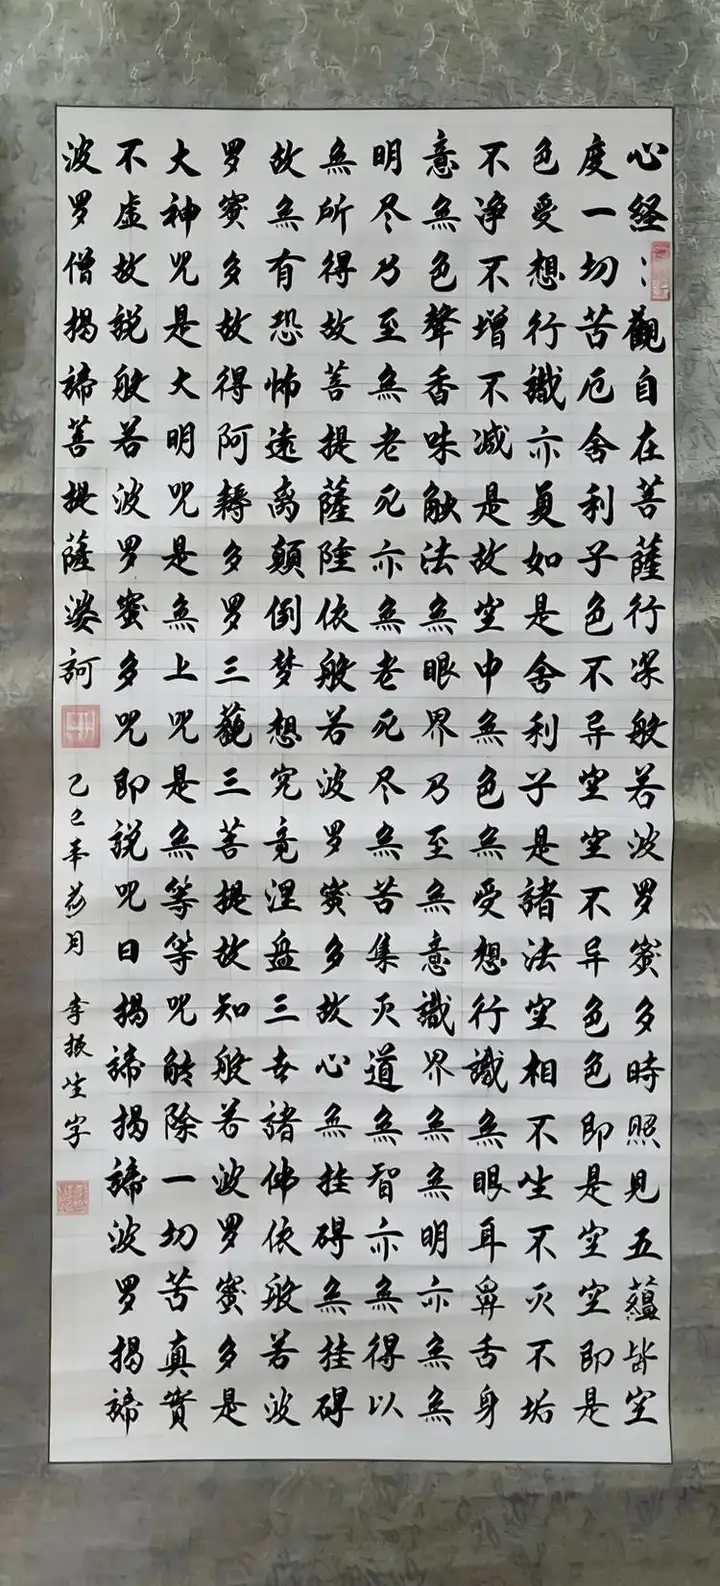 心経：觀自在菩薩行深般若波罗蜜多時照見五蘊皆空
度一切苦厄舍利子色不异空空不异色色即是空空即是
色受想行識亦复如是舍利子是諸法空相不生不灭不垢
不净不增不减是故空中無色無受想行識無眼耳鼻舌身
意無色聲香味触法無眼界乃至無意識界無無明亦無無
明尽乃至無老死亦無老死尽無苦集灭道無智亦無得以
無所得故菩提薩陲依般若波罗蜜多故心無挂碍無挂碍
故無有恐怖遠离顛倒梦想究竟涅盘三世諸佛依般若波
罗蜜多故得阿耨多罗三藐三菩提故知般若波罗蜜多是
大神咒是大明咒是無上咒是無等等咒能除一切苦真實
不虚故説般若波罗蜜多咒即説咒曰揭諦揭諦波罗揭諦
波罗僧揭諦菩提薩婆訶 乙巳年荷月 李振生字